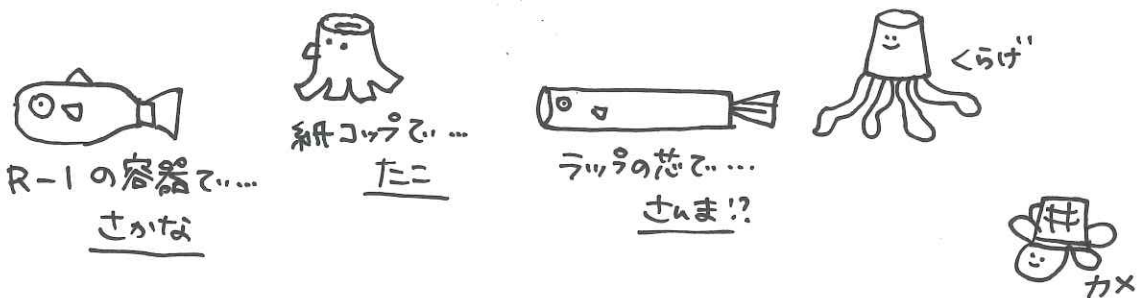 R-1の容器で‥‥
さかな
紙コップで‥‥
たこ
ラップの芯で‥‥
さんま!?
くらげ
カメ